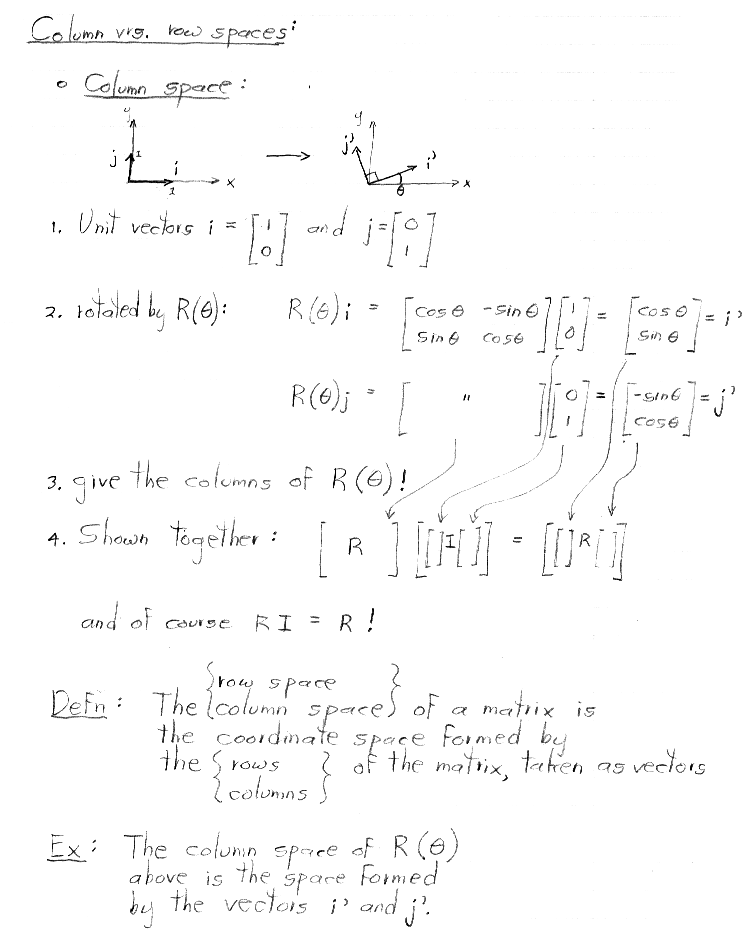 Column vrs. row spaces:
o Column space:
y y
j 1 i → j' i'
1 x θ x
1. Unit vectors i = [1 0] and j = [0 1]
2. rotated by R(θ): R(θ)i = [cosθ -sinθ sinθ cosθ][1 0] = [cosθ sinθ] = i'
R(θ)j = [ " ][0 1] = [-sinθ cosθ] = j'
3. give the columns of R(θ)!
4. Shown together: [ R ] [[ ]I[ ]] = [[ ]R[ ]]
and of course RI = R!
{row space }
Defn: The {column space} of a matrix is
the coordinate space formed by
the {rows } of the matrix, taken as vectors
{columns }
Ex: The column space of R(θ)
above is the space formed
by the vectors i' and j'.